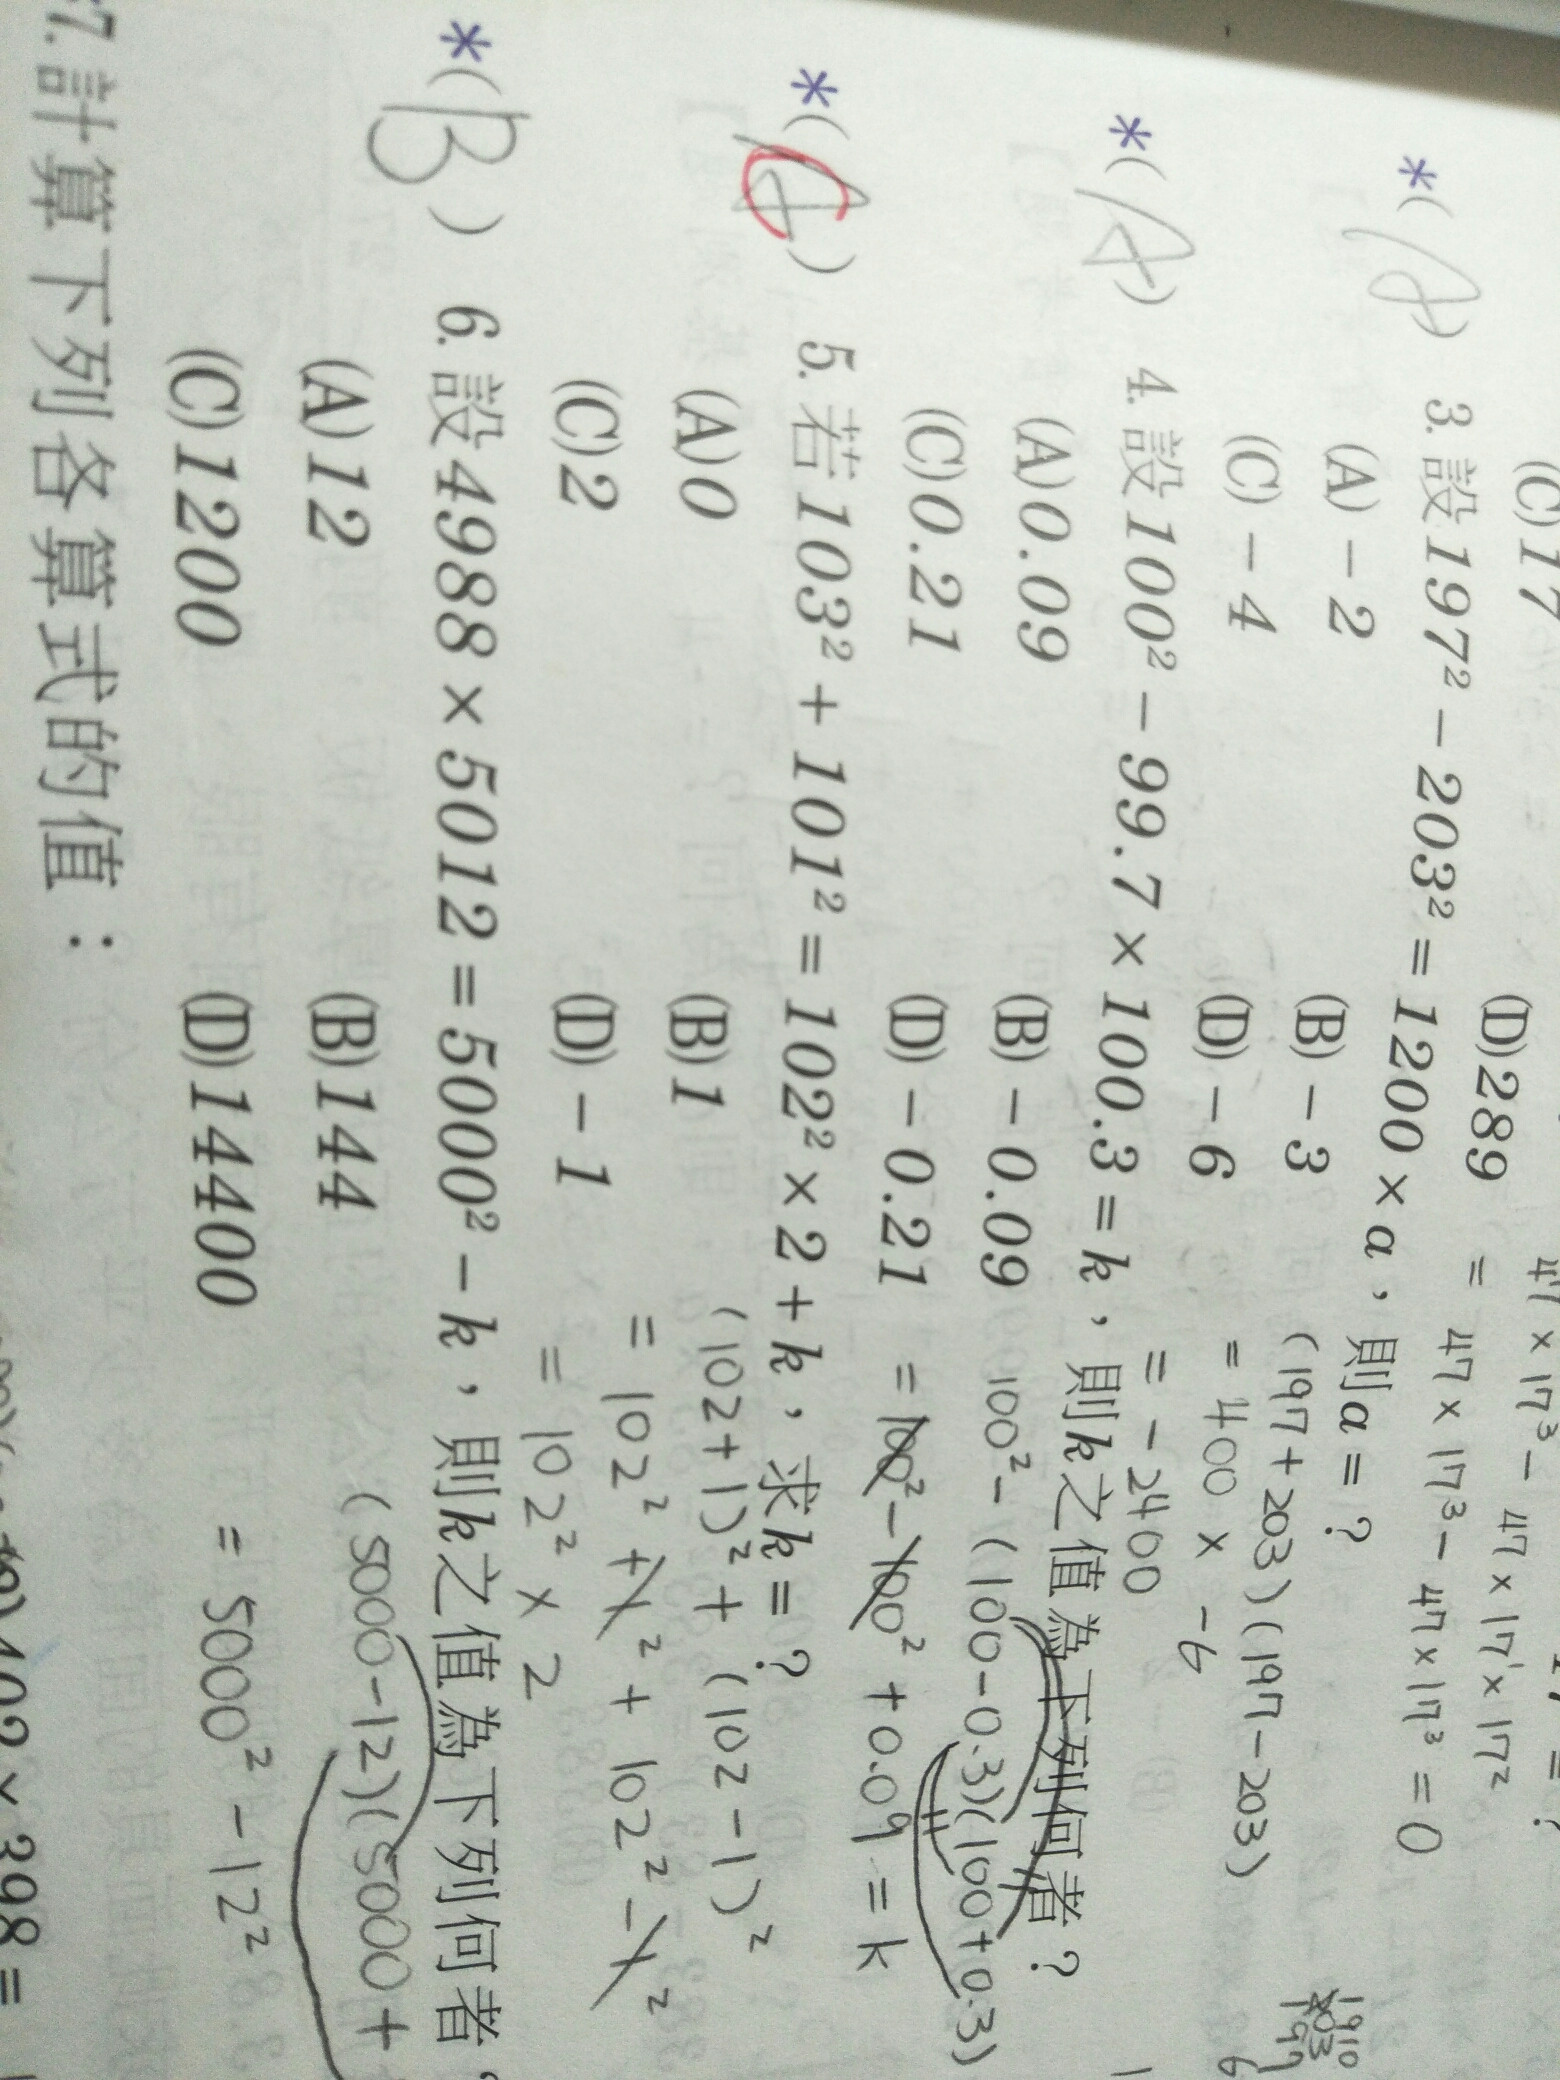 (C)17 (D)289
47×17³-47×17'×17²
= 47×17³-47×17³=0
*(A) 3.設197²-203²=1200×a,則a=?
(A)-2 (B)-3
(197+203)(197-203)
(C)-4 (D)-6
=400×-6
=-2400
*(A) 4.設100²-99.7×100.3=k,則k之值為下列何者?
(A)0.09 (B)-0.09
100²-(100-0.3)(100+0.3)
(C)0.21 (D)-0.21
=100²-100²+0.09=k
*(C) 5.若103²+101²=102²×2+k,求k=?
(A)0 (B)1
(102+1)²+(102-1)²
(C)2 (D)-1
=102²+1²+102²-1²
=102²×2
*(B) 6.設4988×5012=5000²-k,則k之值為下列何者
(A)12 (B)144
(5000-12)(5000+
(C)1200 (D)14400
=5000²-12²
7.計算下列各算式的值:
398=